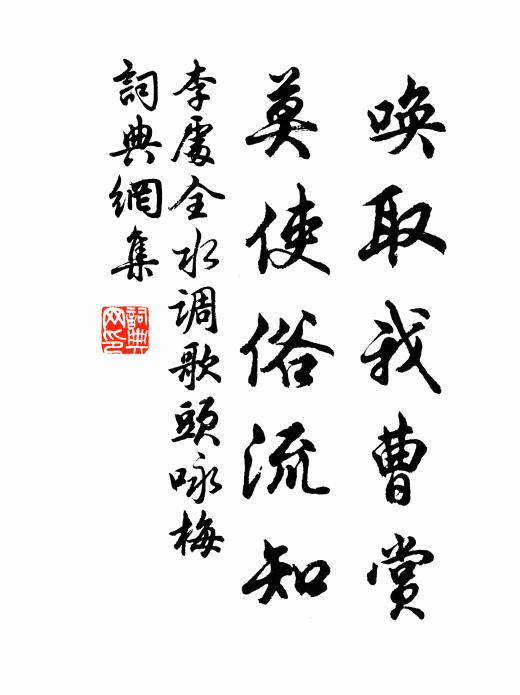 唤取我曹赏
莫使俗流知
李處全水调歌頭咏梅
詞典網集
詞典
网印